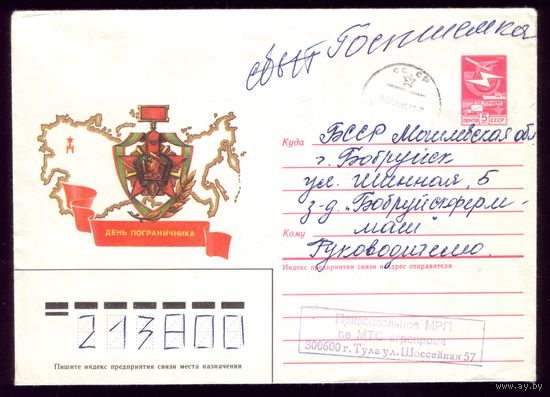 сбыт Госпиемка
СССР
ПОЧТА 5 СССР
Куда БССР Могилевская обл
г. Бобруйск
ул. Шинная, 5
з-д „Бобруйскферм-
маш"
Кому
Руководителю.
ДЕНЬ ПОГРАНИЧНИКА
Индекс предприятия связи и адрес отправителя
Привокзальное МРП
по МТС агропрома
300600 г. Тула ул. Шоссейная 57
213800
Пишите индекс предприятия связи места назначения
www.ay.by